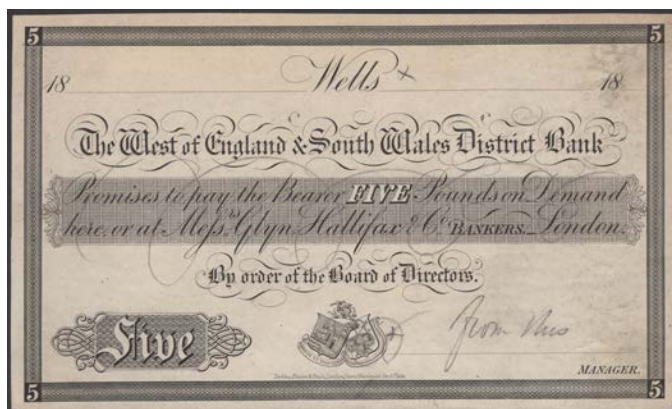 5 5
18 Wells x 18
The West of England & South Wales District Bank
Promises to pay the Bearer FIVE Pounds on Demand
here, or at Mess.rs Glyn, Hallifax & Co. BANKERS._ London.
By order of the Board of Directors.
Five
from this
MANAGER.
5 5